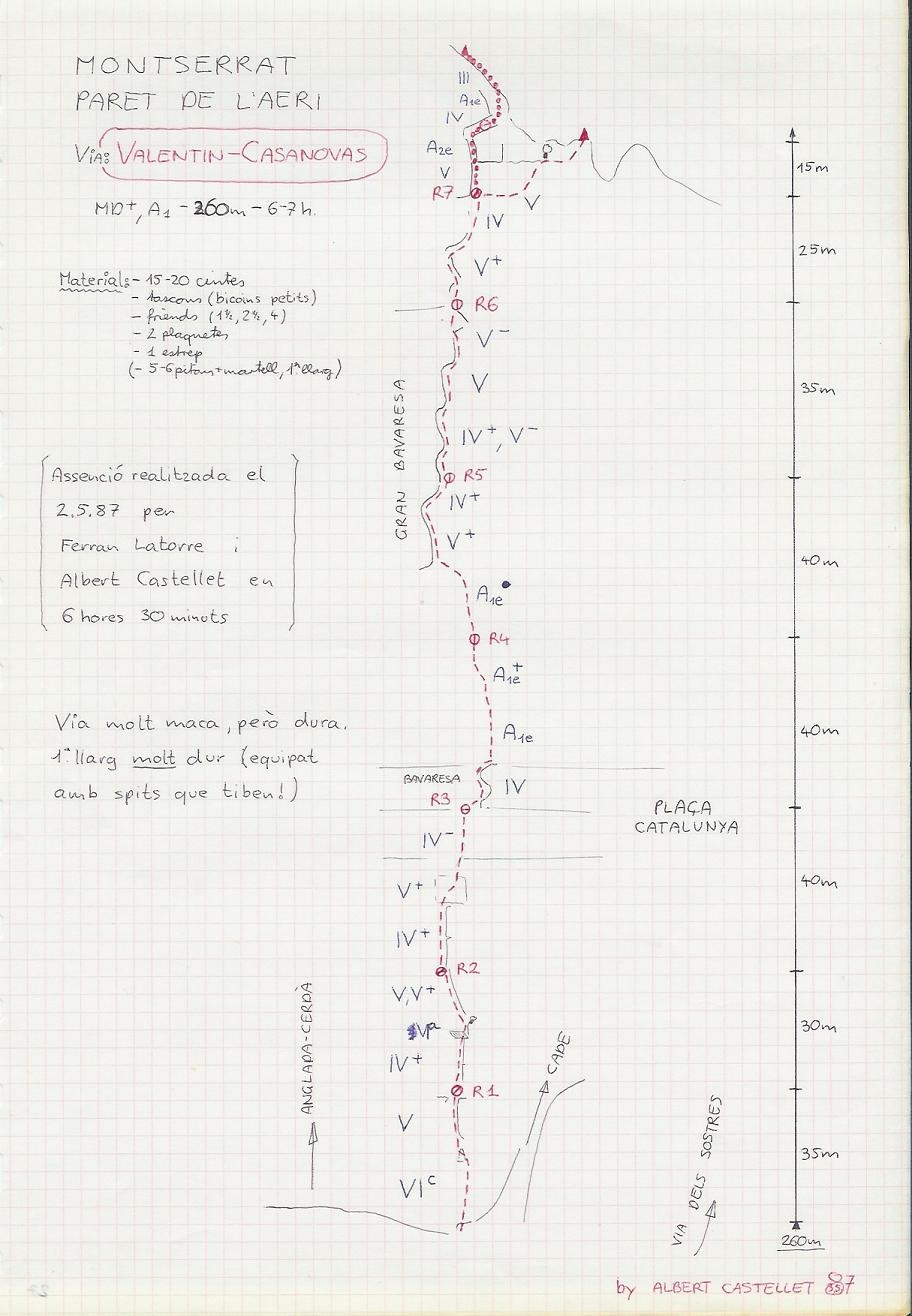 MONTSERRAT
PARET DE L'AERI
VIA: VALENTIN-CASANOVAS
MD+, A1 - 260m - 6-7 h.
Material: - 15-20 cintes
- tascons (bicoins petits)
- friends (1½, 2½, 4)
- 2 plaquetes
- 1 estrep
(- 5-6 pitons + martell, 1ª llarg)
Assenció realitzada el
2.5.87 per
Ferran Latorre i
Albert Castellet en
6 hores 30 minuts
Via molt maca, però dura.
1ª llarg molt dur (equipat
amb spits que tiben!)
III
A1e
IV
A2e
V
R7
V
15m
IV
25m
V+
R6
V-
V
35m
GRAN BAVARESA
IV+, V-
R5
IV+
V+
40m
A1e
R4
A1e+
A1e
40m
BAVARESA
IV
R3
PLAÇA
CATALUNYA
IV-
V+
40m
IV+
R2
V, V+
30m
IV+
R1
V
35m
VIc
ANGLADA-CERDÀ
CADE
VIA DELS SOSTRES
260m
by ALBERT CASTELLET 87